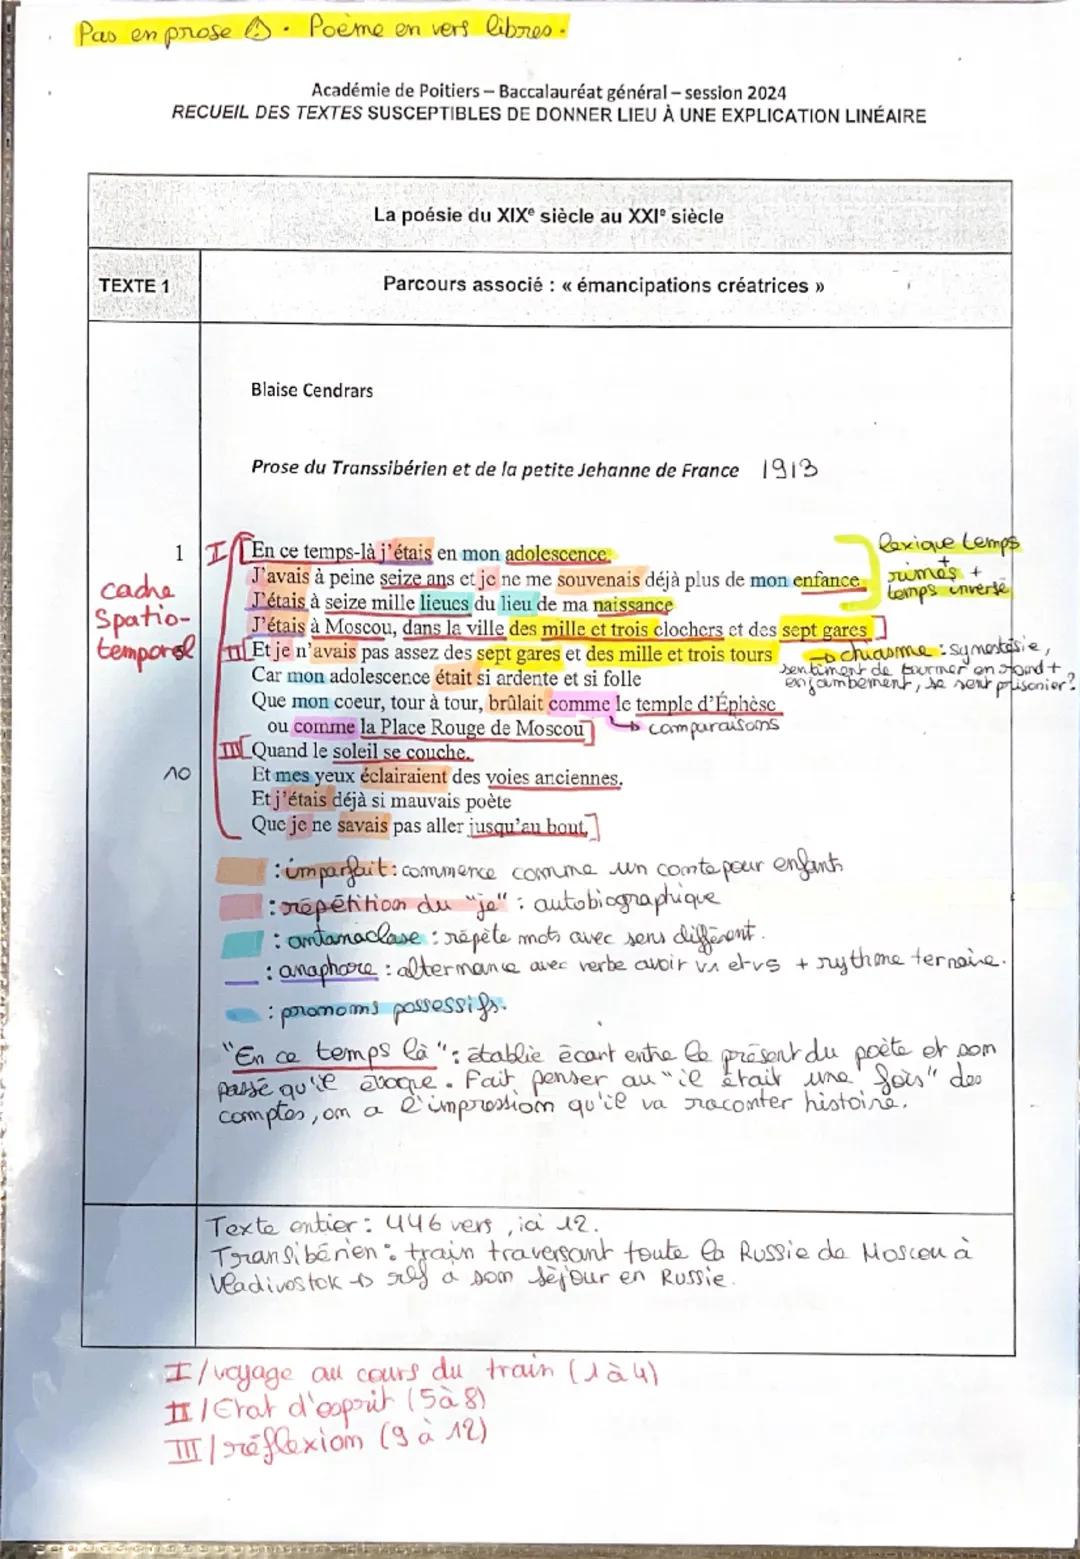 Pas en prose ⚠. Poème en vers libres.
Académie de Poitiers – Baccalauréat général – session 2024
RECUEIL DES TEXTES SUSCEPTIBLES DE DONNER LIEU À UNE EXPLICATION LINÉAIRE
La poésie du XIXe siècle au XXIe siècle
TEXTE 1
Parcours associé : « émancipations créatrices »
Blaise Cendrars
Prose du Transsibérien et de la petite Jehanne de France 1913
1 I/ [En ce temps-là j'étais en mon adolescence.
J'avais à peine seize ans et je ne me souvenais déjà plus de mon enfance.
J'étais à seize mille lieues du lieu de ma naissance
J'étais à Moscou, dans la ville des mille et trois clochers et des sept gares]
lexique temps
+
rimes +
temps inversé
cadre
Spatio-
temporel
II[Et je n'avais pas assez des sept gares et des mille et trois tours
→ chiasme : synestésie,
sentiment de tourner en rond +
enjambement, se sent prisonier?
Car mon adolescence était si ardente et si folle
Que mon coeur, tour à tour, brûlait comme le temple d'Éphèse
ou comme la Place Rouge de Moscou]
↳ comparaisons
III[Quand le soleil se couche.
10 Et mes yeux éclairaient des voies anciennes.
Et j'étais déjà si mauvais poète
Que je ne savais pas aller jusqu'au bout.]
: imparfait : commence comme un conte pour enfants
: répétition du "je" : autobiographique
: antanaclase : répète mots avec sens différent.
: anaphore : alternance avec verbe avoir vs etvs + rythme ternaire.
: pronoms possessifs.
"En ce temps là" : établie écart entre le présent du poète et son
passé qu'il évoque. Fait penser au "il était une fois" des
comptes, on a l'impression qu'il va raconter histoire.
Texte entier : 446 vers, ici 12.
Transibérien : train traversant toute la Russie de Moscou à
Vladivostok → ref a son séjour en Russie.
I/ voyage au cours du train (1 à 4)
II/ Etat d'esprit (5 à 8)
III/ réflexion (9 à 12)